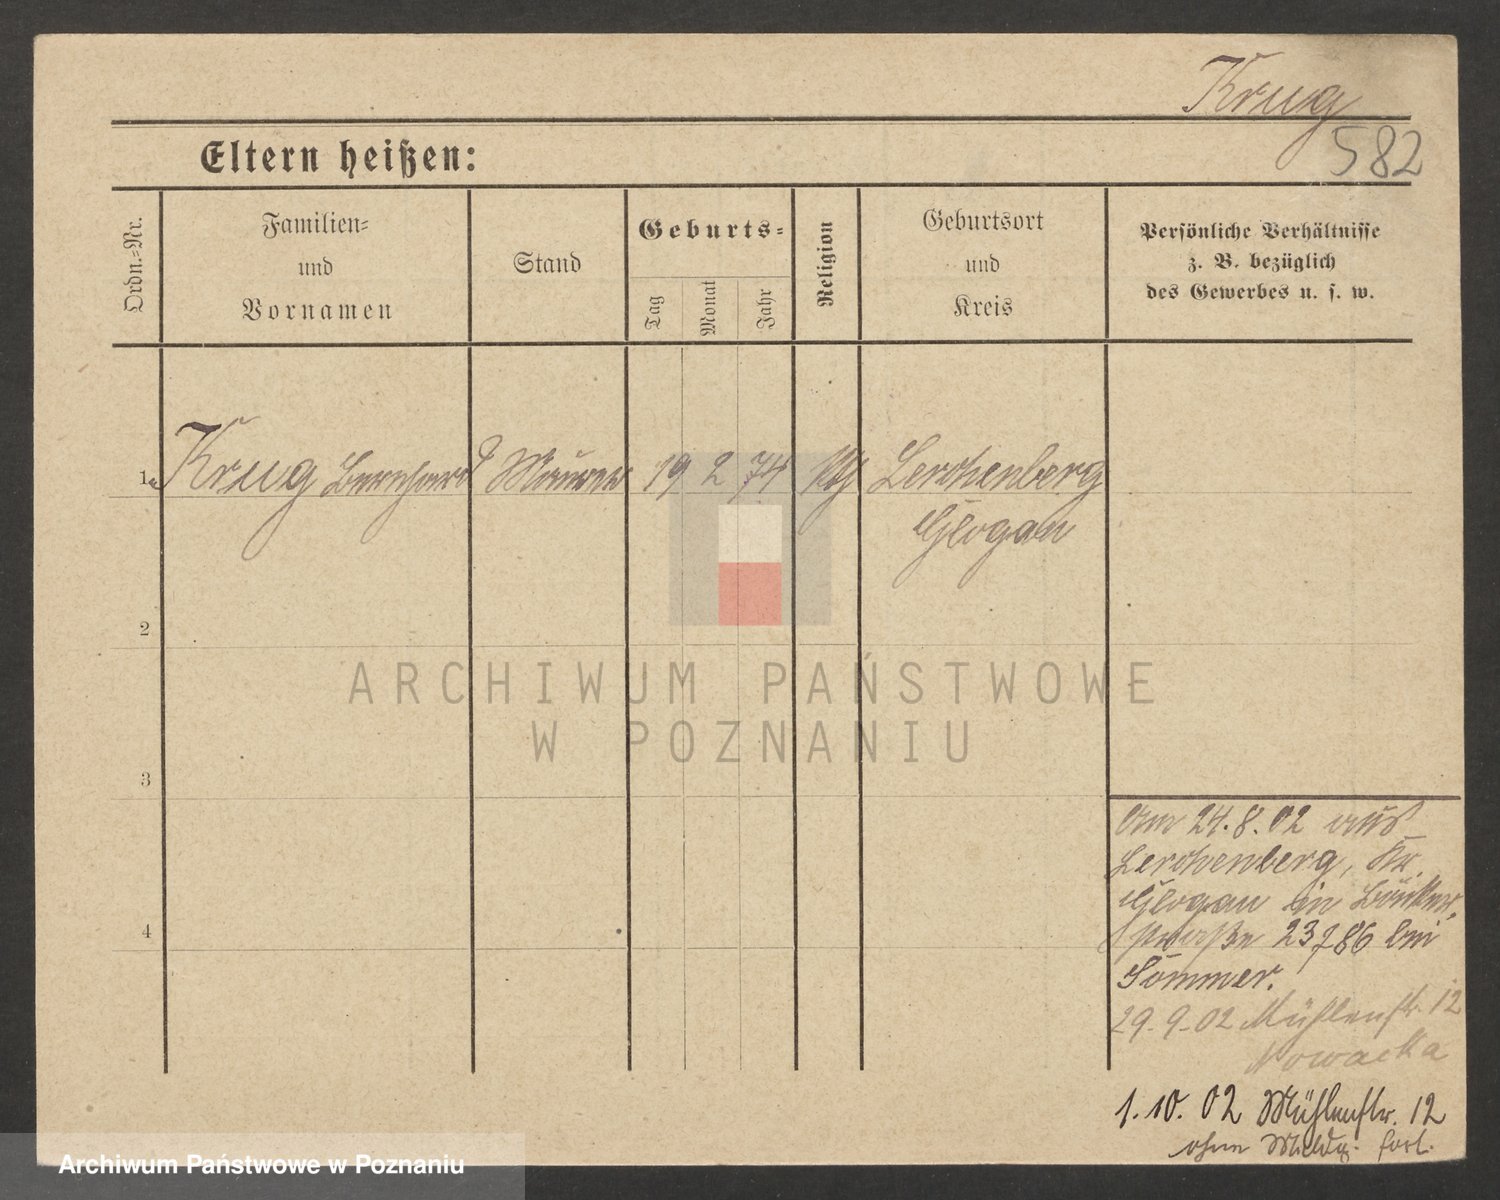 Krug
582
Eltern heißen:
Ordn.-Nr.
Familien-
und
Vornamen
Stand
Geburts-
Tag
Monat
Jahr
Religion
Geburtsort
und
Kreis
Persönliche Verhältnisse
z. B. bezüglich
des Gewerbes u. s. w.
1. Krug Bernhard Maurer 19 2 74 kth Lerchenberg
Glogau
2
3
4
Am 24.8.02 aus
Lerchenberg, Kr.
Glogau in Bäcker-
straße 23 bei
Sommer.
29.9.02 Mühlenstr. 12
Nowacka
1.10.02 Mühlenstr. 12
ohne Meldg. fort.
ARCHIWUM PAŃSTWOWE
W POZNANIU
Archiwum Państwowe w Poznaniu